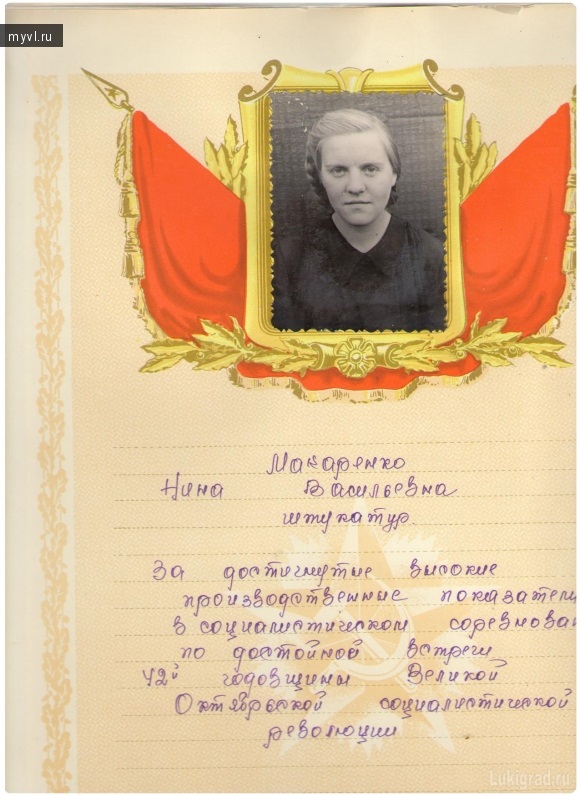 myvl.ru
Макаренко
Нина Васильевна
штукатур.
За достигнутые высокие
производственные показатели
в социалистическом соревнова
по достойной встрече
42й годовщины Великой
Октябрьской социалистической
революции
Lukigrad.ru